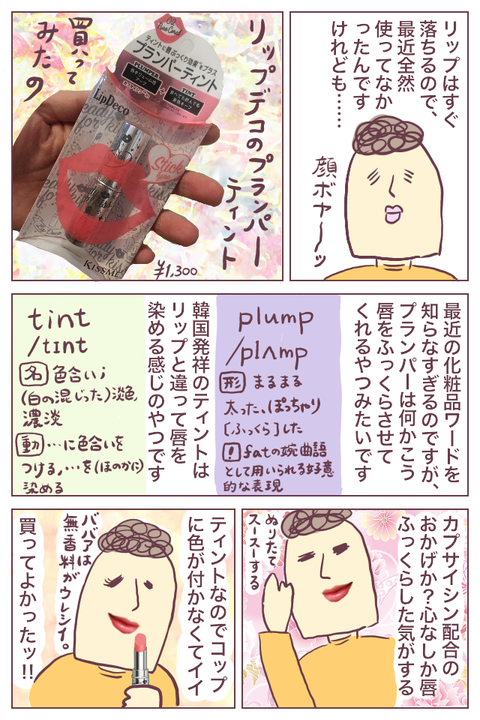 リップはすぐ
落ちるので、
最近全然
使ってなか
ったんです
けれども……
顔ボヤ〜ッ
リップデコのプランパー
ティント
買って
みたの
¥1,300
02
ティントに唇ぷっくり効果をプラス
プランパーティント
PLUMPER
TINT
LipDeco
KISSME
最近の化粧品ワードを
知らなすぎるのですが、
プランパーは何かこう
唇をふっくらさせて
くれるやつみたいです
plump
/plʌmp
形 まるまる
太った、ぽっちゃり
[ふっくら]した
! fatの婉曲語
として用いられる好意
的な表現
韓国発祥のティントは
リップと違って唇を
染める感じのやつです
tint
/tɪnt
名 色合い;
(白の混じった)淡色,
濃淡
動 …に色合いを
つける,…を(ほのかに)
染める
カプサイシン配合の
おかげか?心なしか唇
ふっくらした気がする
ぬりたて
スースーする
ティントなのでコップ
に色が付かなくてイイ
ババアは
無香料がウレシイ。
買ってよかったッ!!